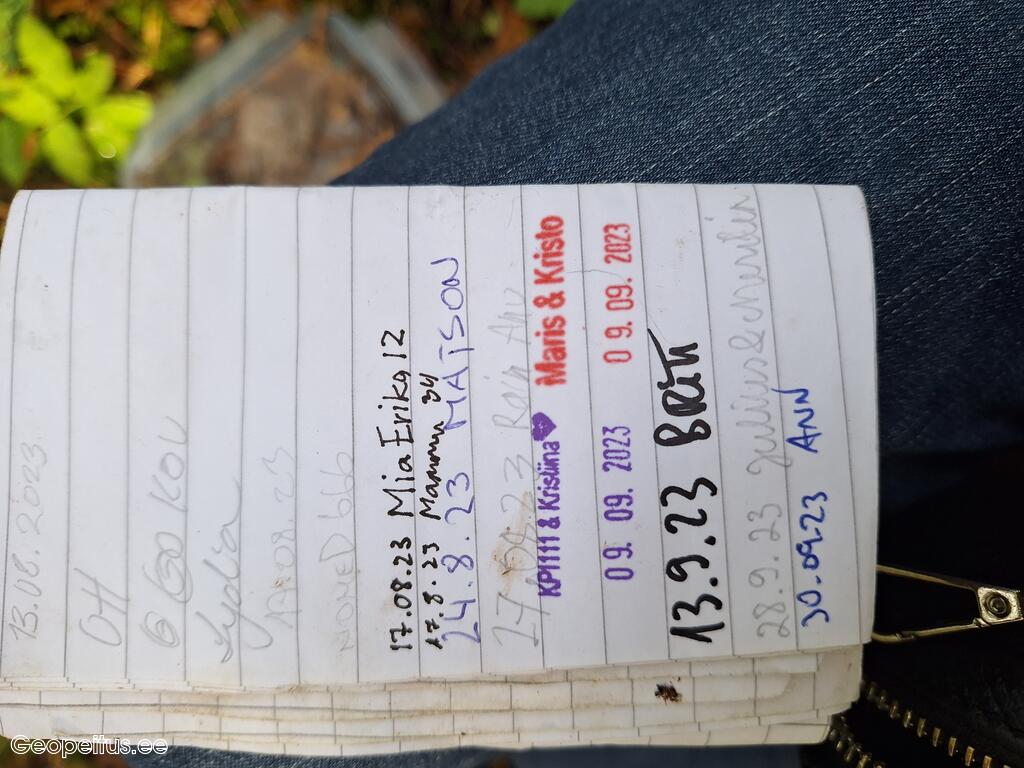 13.08.2023
OH
Lydia
NOMED666
17.08.23 Mia Erika 12
17.8.23 Mammu 04
24.8.23 MATSON
KP1111 & Kristiina Maris & Kristo
09. 09. 2023 09. 09. 2023
13.9.23 BRITT
28.9.23 Julius&
30.09.23 ANN
Geopeitus.ee